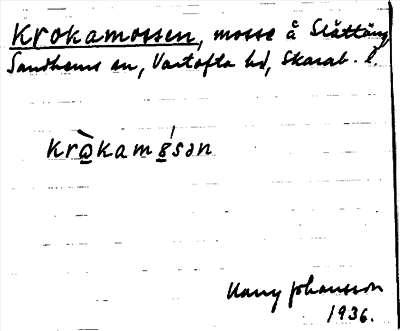 Krokamossen, mosse å Slättäng
Sandhems sn, Vartofta hd, Skarab. l.
kròkamo̱sən
Harry Johansson
1936.